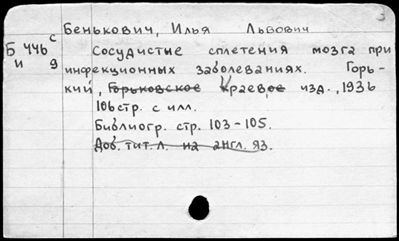 3
Бенькович, Илья Львович
с
Б 446 Сосудистые сплетения мозга при
и 9 инфекционных заболеваниях. Горь-
кий, Горьковское Краевое изд., 1936
106 стр. с илл.
Библиогр. стр. 103-105.
Доб. тит. л. на англ. яз.